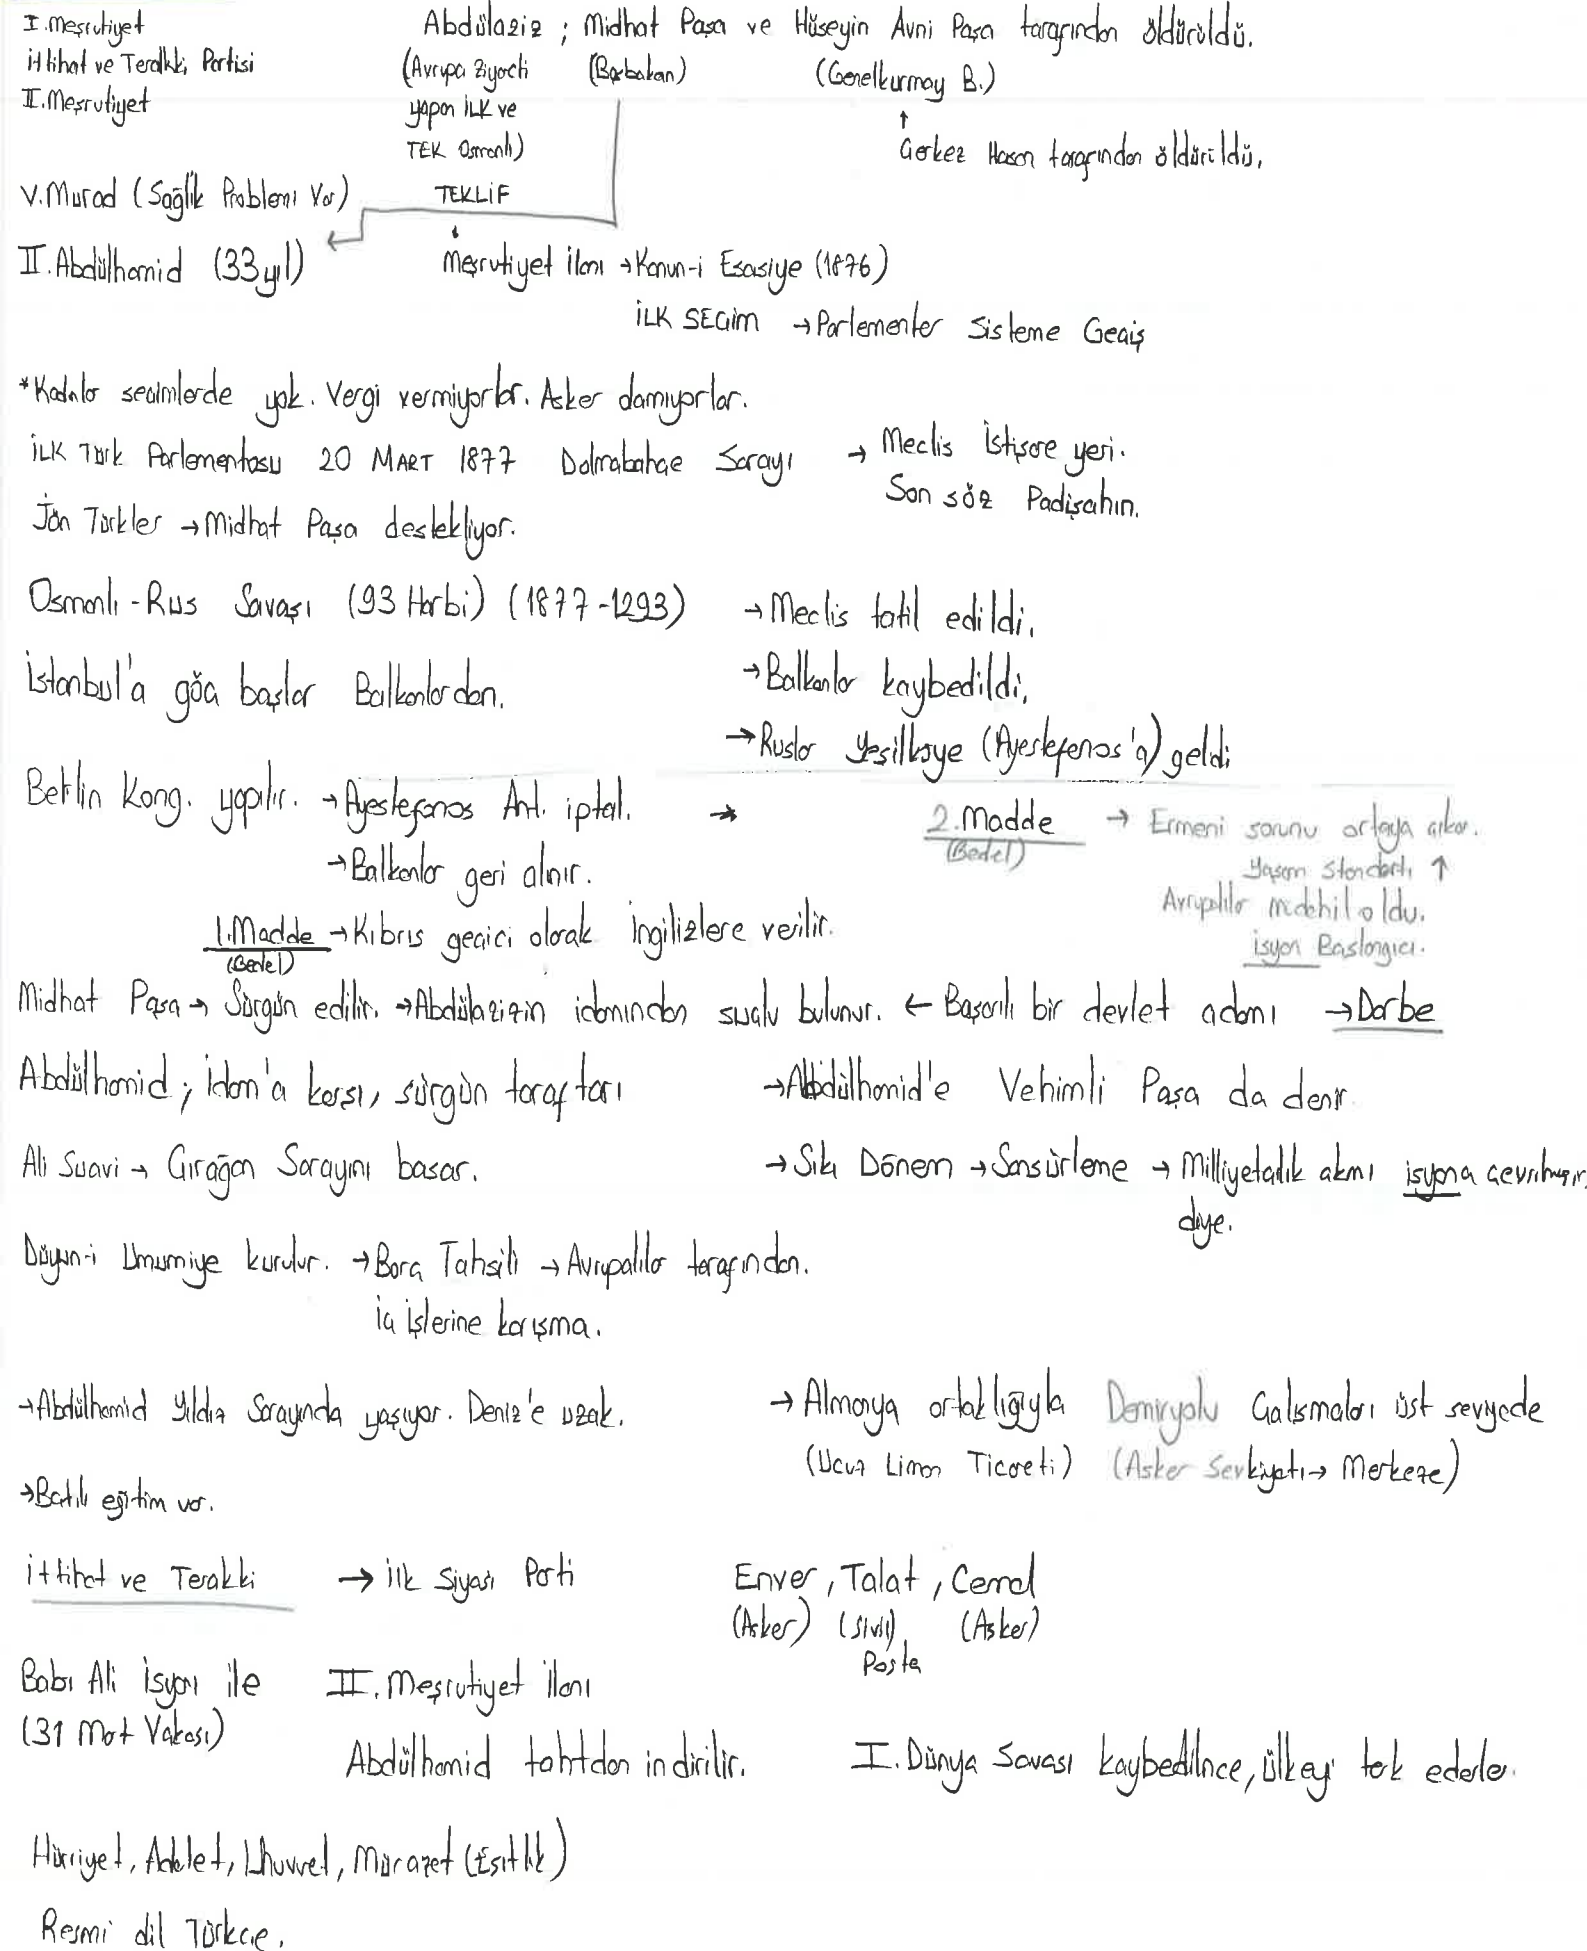 I. Meşrutiyet
İttihat ve Terakki Partisi
II. Meşrutiyet
Abdülaziz ; Midhat Paşa ve Hüseyin Avni Paşa tarafından öldürüldü.
(Avrupa Ziyareti yapan İLK ve TEK Osmanlı)
(Başbakan)
(Genelkurmay B.)
↑
Çerkez Hasan tarafından öldürüldü.
V. Murad (Sağlık Problemi Var)
TEKLİF
II. Abdülhamid (33 yıl)
Meşrutiyet ilanı → Kanun-i Esasiye (1876)
İLK SEÇİM → Parlementer Sisteme Geçiş
*Kadınlar seçimlerde yok. Vergi vermiyorlar. Asker olamıyorlar.
İLK Türk Parlementosu 20 MART 1877 Dolmabahçe Sarayı → Meclis İstişare yeri.
Son söz Padişahın.
Jön Türkler → Midhat Paşa destekliyor.
Osmanlı - Rus Savaşı (93 Harbi) (1877-1293) → Meclis tatil edildi.
İstanbul'a göç başlar Balkanlardan.
→ Balkanlar kaybedildi.
→ Ruslar Yeşilköye (Ayestefanos'a) geldi
Berlin Kong. yapılır. → Ayestefanos Ant. iptal. →
→ Balkanlar geri alınır.
1. Madde → Kıbrıs geçici olarak İngilizlere verilir.
(Bedel)
2. Madde → Ermeni sorunu ortaya çıkar.
(Bedel)
Yaşam Standartı ↑
Avrupalılar müdahil oldu.
isyan Başlangıcı.
Midhat Paşa → Sürgün edilir. → Abdülazizin idamından suçlu bulunur. ← Başarılı bir devlet adamı → Darbe
Abdülhamid ; İdam'a karşı, sürgün taraftarı
→ Abdülhamid'e Vehimli Paşa da denir.
Ali Suavi → Çırağan Sarayını basar.
→ Sıkı Dönem → Sansürleme → Milliyetçilik akımı isyana çevrilmesin
diye.
Düyun-i Umumiye kurulur. → Borç Tahsili → Avrupalılar tarafından.
İç işlerine karışma.
→ Abdülhamid Yıldız Sarayında yaşıyor. Deniz'e uzak.
→ Almanya ortaklığıyla Demiryolu Çalışmaları üst seviyede
(Ucuz Liman Ticareti) (Asker Sevkiyatı → Merkeze)
→ Batılı eğitim var.
İttihat ve Terakki → ilk Siyasi Parti
Enver, Talat, Cemal
(Asker) (Sivil) (Asker)
Posta
Babı Ali İsyanı ile II. Meşrutiyet ilanı
(31 Mart Vakası)
Abdülhamid tahtdan indirilir.
I. Dünya Savaşı kaybedilince, ülkeyi terk ederler.
Hürriyet, Adalet, Uhuvvet, Müsavat (Eşitlik)
Resmi dil Türkçe.